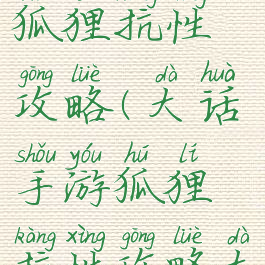 狐狸抗性
gōng lüè dà huà
攻略(大话
shǒu yóu hú lí
手游狐狸
kàng xìng gōng lüè dà
抗性攻略大